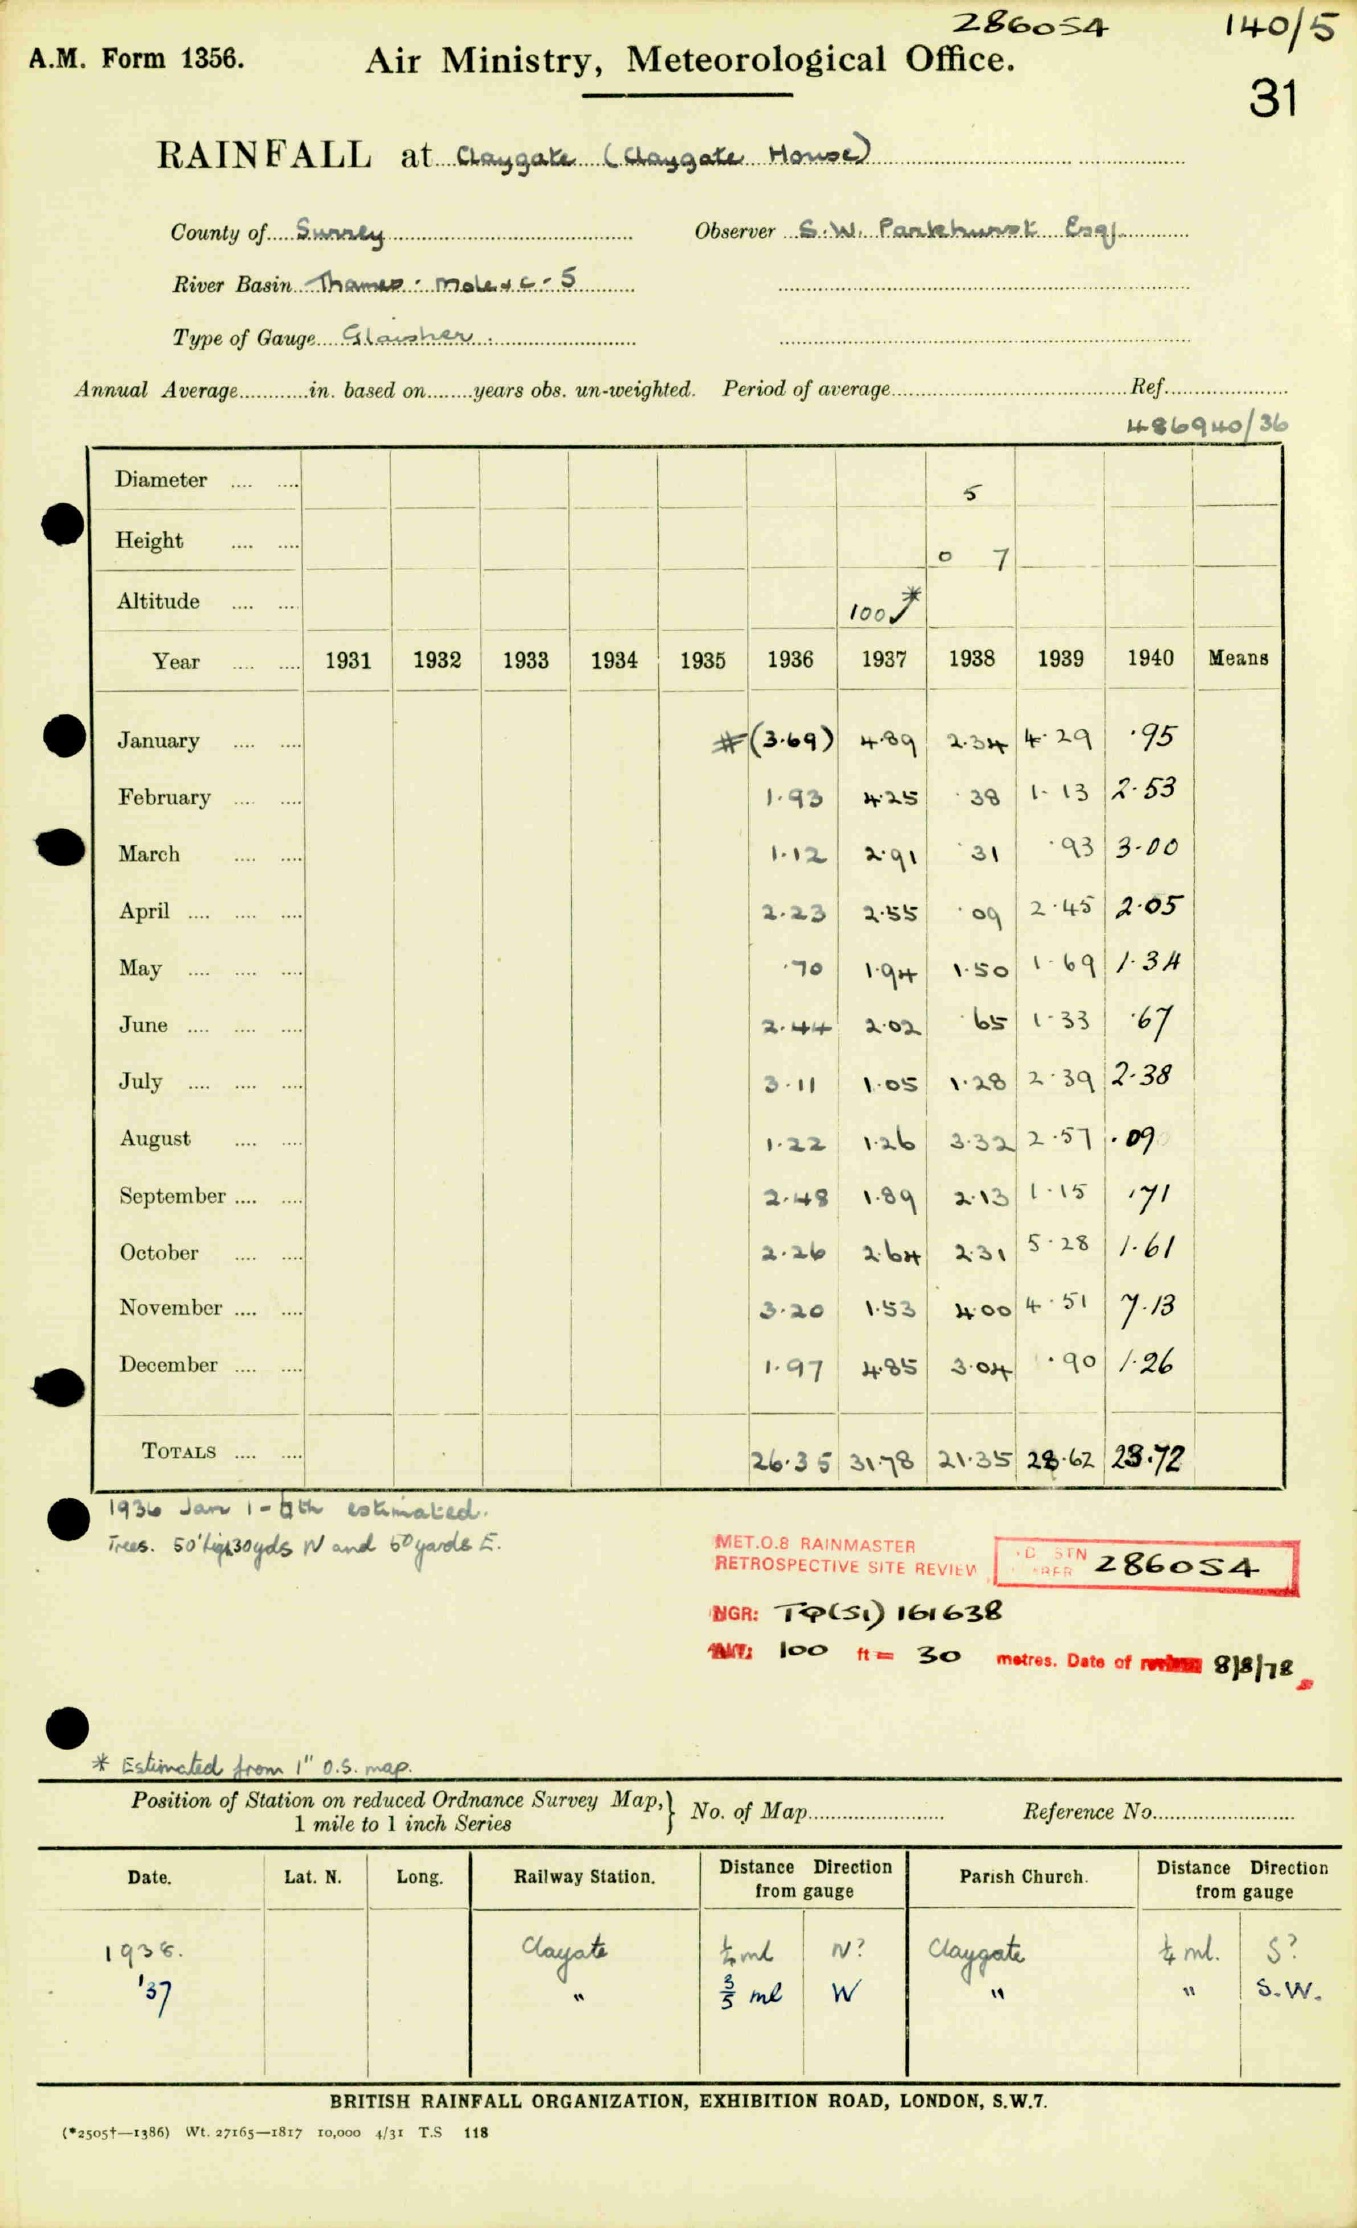 286054 140/5
A.M. Form 1356. Air Ministry, Meteorological Office.
31
RAINFALL at Claygate (Claygate House)
County of Surrey Observer S.W. Parkhurst Esq.
River Basin Thames - Mole &c - 5
Type of Gauge Glaisher
Annual Average in. based on years obs. un-weighted. Period of average Ref.
486940/36
Diameter 5
Height 0 7
Altitude 100 *
Year 1931 1932 1933 1934 1935 1936 1937 1938 1939 1940 Means
January #(3.69) 4.89 2.34 4.29 .95
February 1.93 4.25 .38 1.13 2.53
March 1.12 2.91 .31 .93 3.00
April 2.23 2.55 .09 2.45 2.05
May .70 1.94 1.50 1.69 1.34
June 2.44 2.02 .65 1.33 .67
July 3.11 1.05 1.28 2.39 2.38
August 1.22 1.26 3.32 2.57 .09
September 2.48 1.89 2.13 1.15 .71
October 2.26 2.64 2.31 5.28 1.61
November 3.20 1.53 4.00 4.51 7.13
December 1.97 4.85 3.04 .90 1.26
TOTALS 26.35 31.78 21.35 28.62 23.72
1936 Jan 1 - estimated.
Trees. 50' high 30yds N and 50 yards E.
MET.O.8 RAINMASTER
RETROSPECTIVE SITE REVIEW STN 286054
NGR: TQ(51) 161638
100 ft = 30 metres. Date of 8/8/78
* Estimated from 1" O.S. map.
Position of Station on reduced Ordnance Survey Map, } No. of Map Reference No.
1 mile to 1 inch Series
Date. Lat. N. Long. Railway Station. Distance Direction from gauge Parish Church. Distance Direction from gauge
1936. Claygate ½ ml N? Claygate ¼ ml. S?
'37 " 3/5 ml W " " S.W.
BRITISH RAINFALL ORGANIZATION, EXHIBITION ROAD, LONDON, S.W.7.
(*2505†—1386) Wt. 27165—1817 10,000 4/31 T.S 118